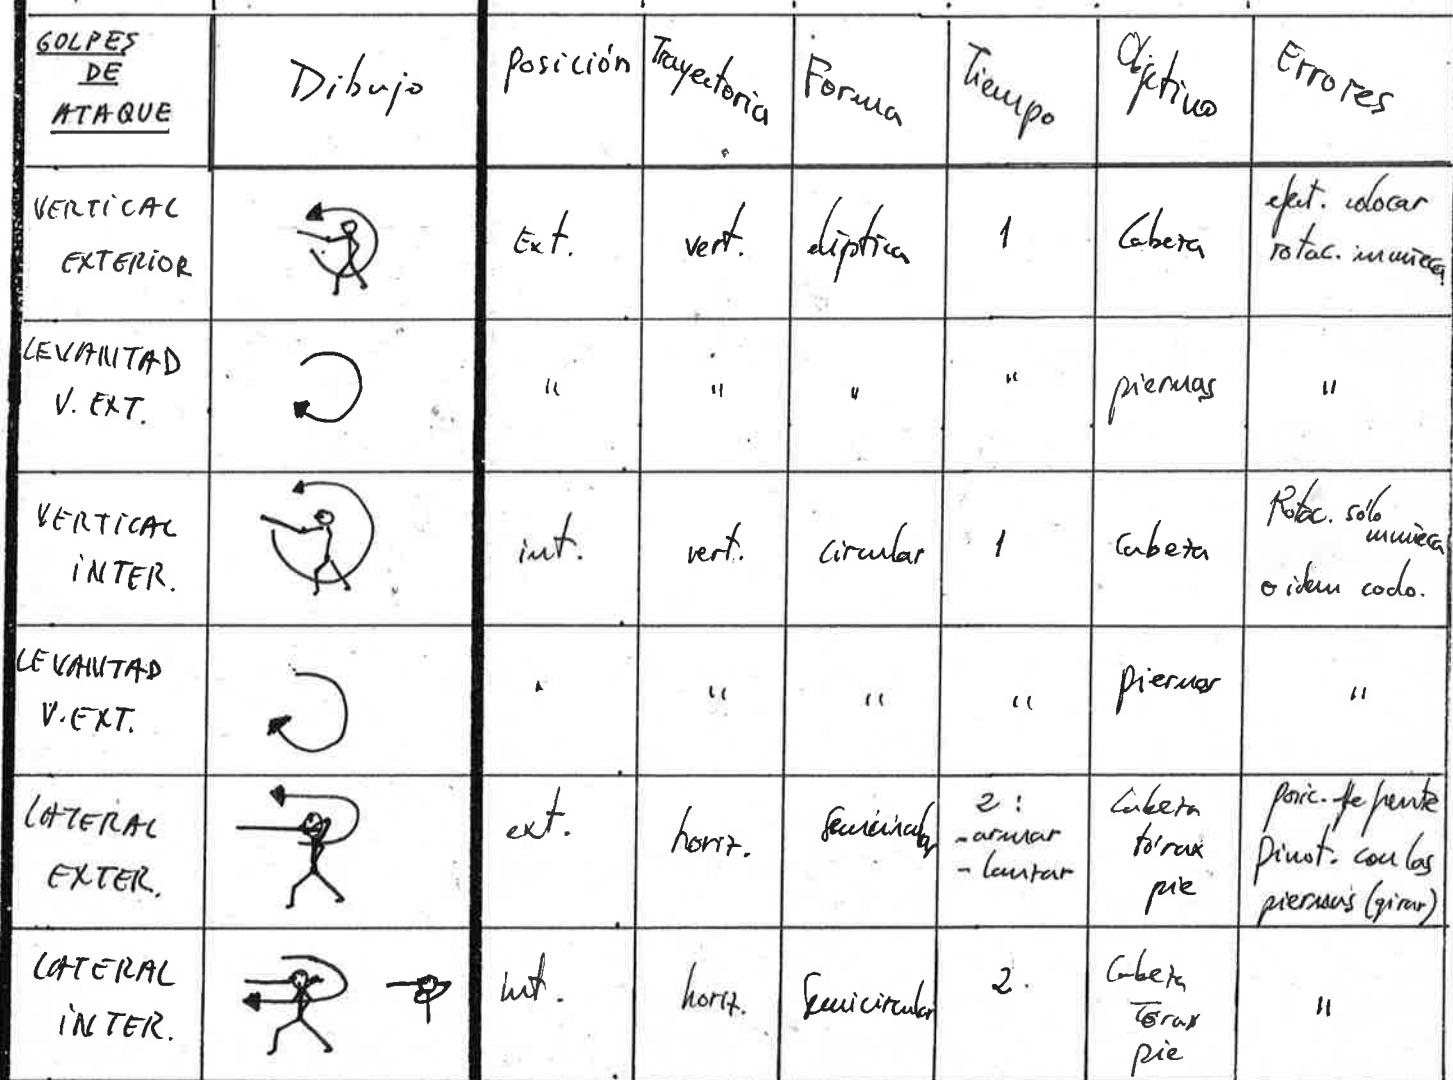 GOLPES
DE
ATAQUE
Dibujo
Posición
Trayectoria
Forma
Tiempo
Objetivo
Errores
VERTICAL
EXTERIOR
Ext.
vert.
elíptica
1
Cabeza
efect. colocar
rotac. muñeca
LEVANTAD
V. EXT.
"
"
"
"
piernas
"
VERTICAL
INTER.
int.
vert.
circular
1
Cabeza
Rotac. sólo
muñeca
o idem codo.
LEVANTAD
V. EXT.
"
"
"
piernas
"
LATERAL
EXTER.
ext.
horiz.
Semicircular
2:
- armar
- lanzar
Cabeza
tórax
pie
posic. de frente
Pivot. con las
piernas (girar)
LATERAL
INTER.
int.
horiz.
Semicircular
2.
Cabeza
Tórax
pie
"